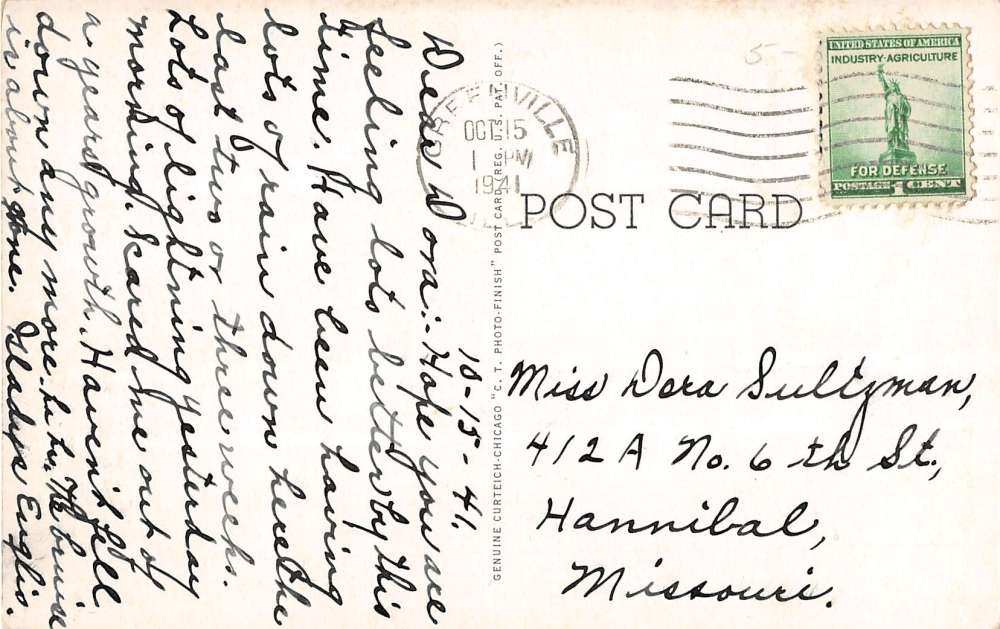 10-15-41.
Dear Dora:- Hope you are
feeling lots better by this
time. Have been having
lots of rain down here the
last two or three weeks.
Lots of lightning yesterday
morning. Scared me out of
a years growth. Haven't fell
down any more. hi hi. The bruise
is almost gone.
GENUINE CURTEICH-CHICAGO "C. T. PHOTO-FINISH" POST CARD (REG. U.S. PAT. OFF.)
GREENVILLE
OCT 15
PM
1941
ILL.
5-
UNITED STATES OF AMERICA
INDUSTRY-AGRICULTURE
FOR DEFENSE
POSTAGE 1 CENT
POST CARD
Miss Dora Sultzman,
412 A No. 6 th St.,
Hannibal,
Missouri.